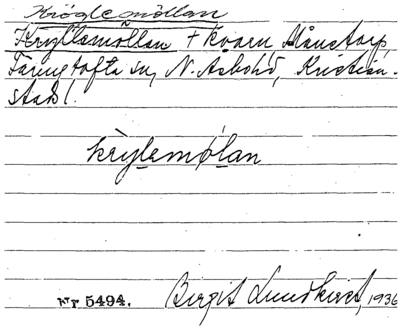 Kröglemöllan
Kryllemöllan + kvarn Månstorp,
Färingtofta sn, N. Åsbo hd, Kristian-
stads l.
krylemølan
Nr 5494. Birgit Lundkvist, 1936